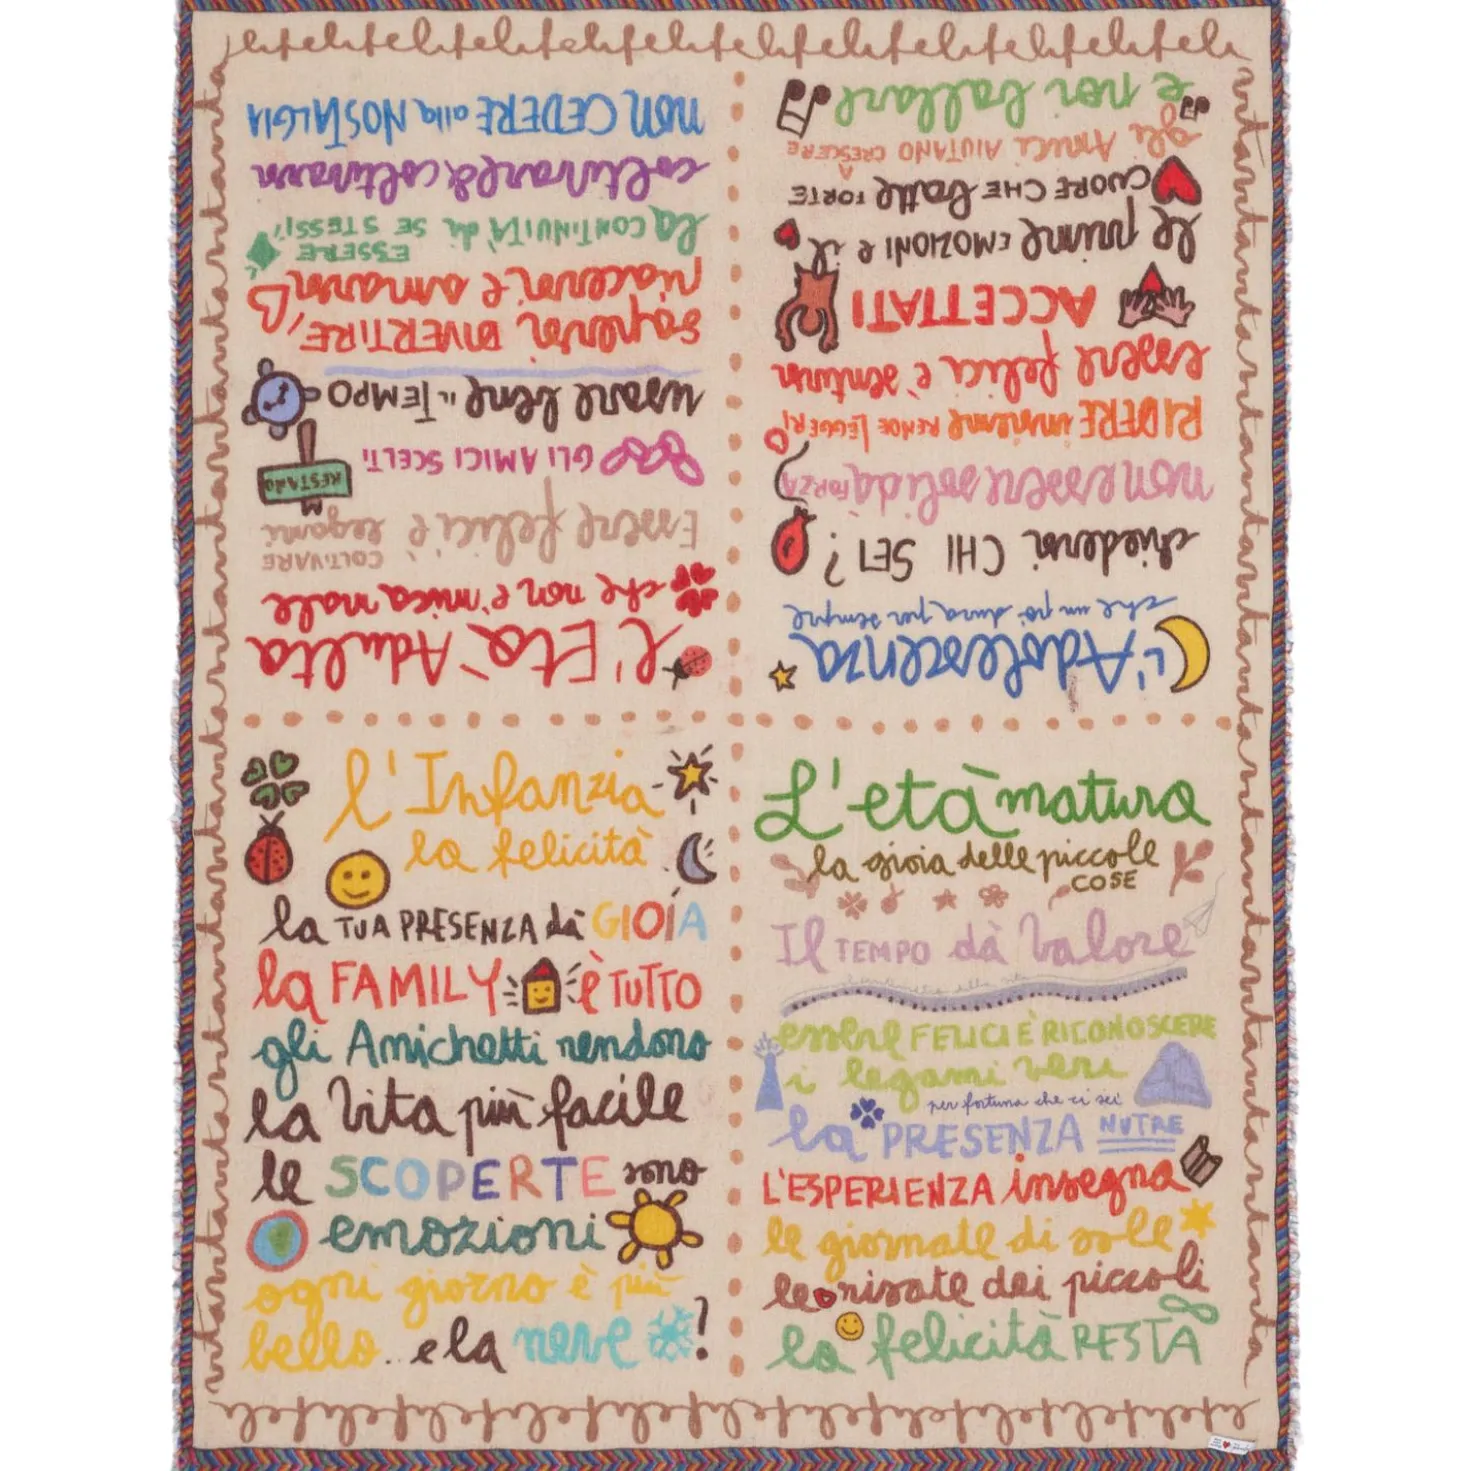 lifelifelifelifelifelifelifelifelifelifelife
l'Infanzia
la felicità
la TUA PRESENZA dà GIOIA
la FAMILY è TUTTO
gli Amichetti rendono
la vita più facile
le SCOPERTE sono
emozioni
ogni giorno è più
bello.. e la neve !
L'età matura
la gioia delle piccole
COSE
Il TEMPO dà valore
essere FELICI È RICONOSCERE
i legami veri
per fortuna che ci sei
la PRESENZA NUTRE
L'ESPERIENZA insegna
le giornate di sole
le risate dei piccoli
la felicità RESTA
L'Adolescenza
che un po' dura per sempre
chiedersi CHI SEI?
non essere soli dà FORZA
RIDERE insieme RENDE LEGGERI
essere felici è sentirsi
ACCETTATI
le prime EMOZIONI e il
CUORE CHE batte FORTE
gli Amici AIUTANO A CRESCERE
e noi ballare
l'Età Adulta
che non è mica male
Essere felici è COLTIVARE legami
GLI AMICI SCELTI RESTANO
usare bene IL TEMPO
sapersi DIVERTIRE,
piacersi e amarsi
la CONTINUITÀ di ESSERE SE STESSI,
coltivare & coltivarsi
non CEDERE alla NOSTALGIA